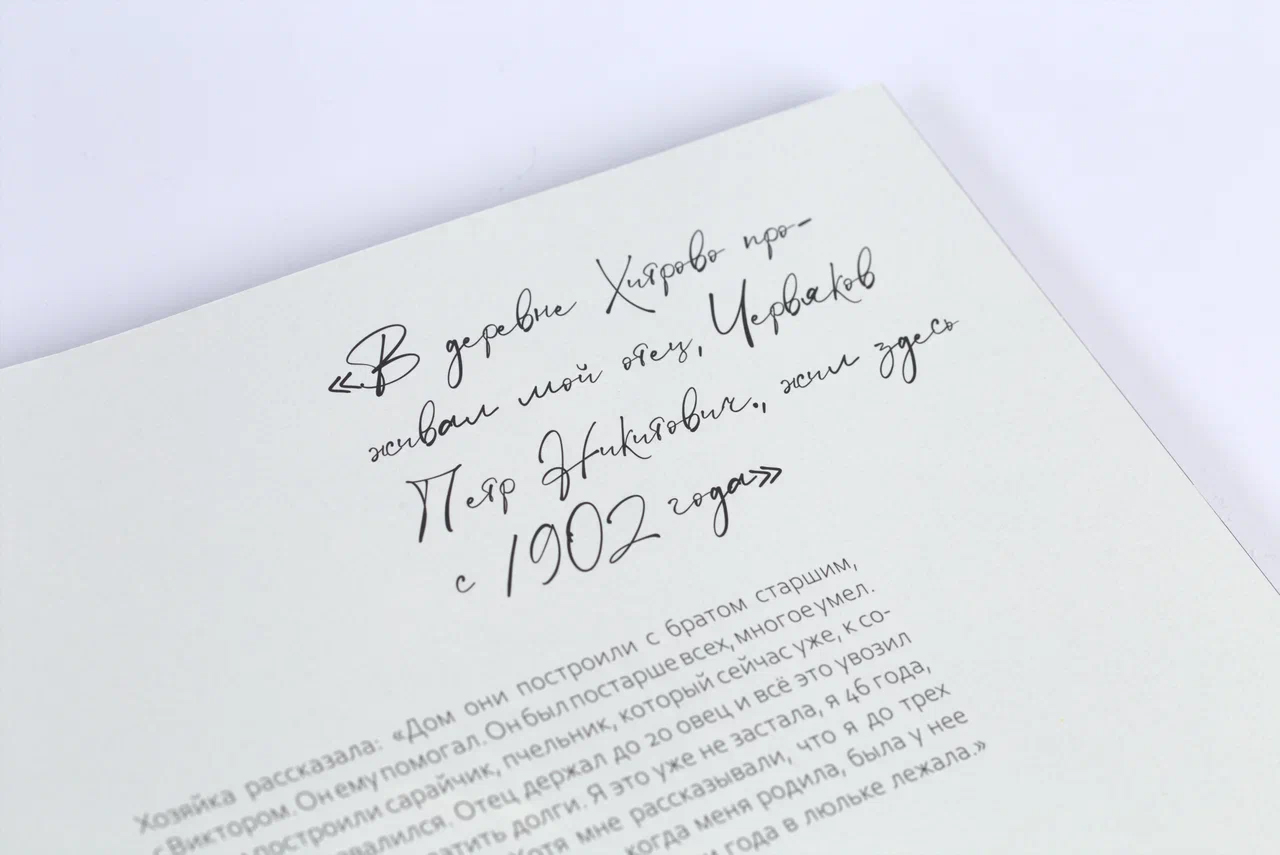 «В деревне Хитрово про-
живал мой отец, Червяков
Петр Никитович., жил здесь
с 1902 года»
Хозяйка рассказала: «Дом они построили с братом старшим,
с Виктором. Он ему помогал. Он был постарше всех, многое умел.
построили сарайчик, пчельник, который сейчас уже, к со-
валился. Отец держал до 20 овец и всё это увозил
долги. Я это уже не застала, я 46 года,
Хотя мне рассказывали, что я до трех
когда меня родила, была у нее
и года в люльке лежала.»